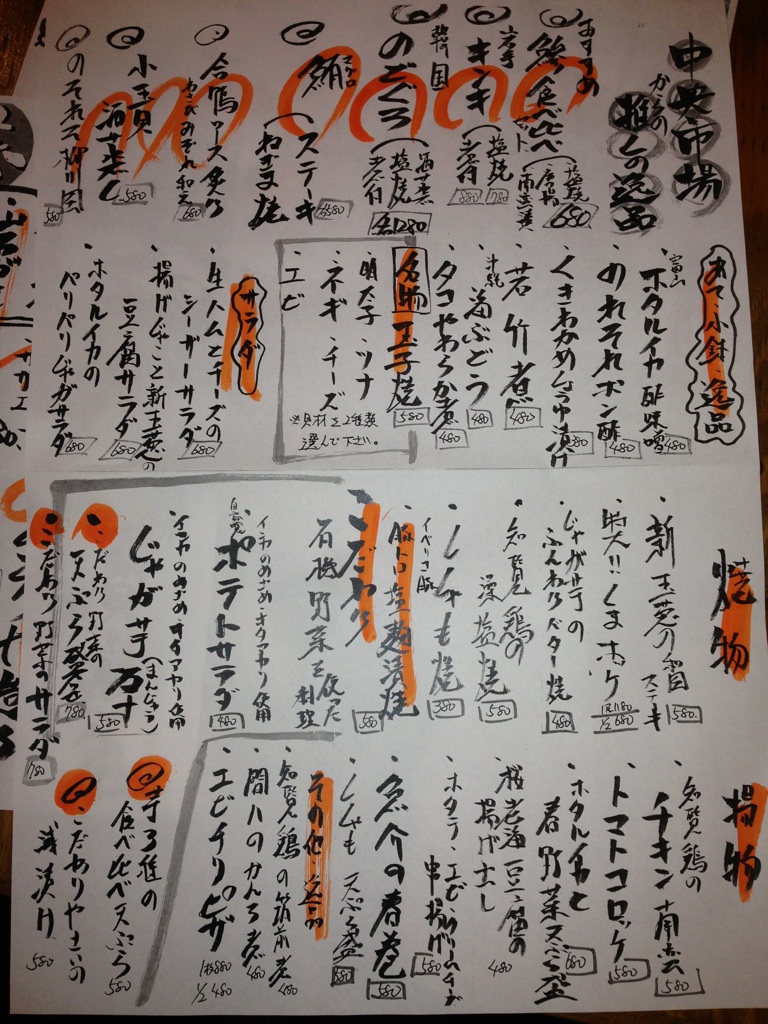 中央市場
からの
推しの逸品
おすすめ
食べ比べ
セット
塩焼
南蛮
680
岩手
キンキ
塩焼
煮付
780
880
韓国
のどぐろ
酒蒸
塩焼
煮付
各1280
鮪
マグロ
ステーキ
ねぎま焼
各580
合鴨ロース炙り
わさびのぞれ和え
680
小玉貝
酒蒸し
580
のそれそ柳川風
580
あて・小鉢・逸品
富山
ホタルイカ酢味噌
480
のれそれポン酢
480
くきわかめしょうゆ漬け
380
若竹煮
480
沖縄
海ぶどう
480
タコやわらか煮
480
名物玉子焼
580
明太子・ツナ
ネギ・チーズ
エビ
※具材を2種類
選んで下さい。
サラダ
・生ハムとチーズの
シーザーサラダ
680
・揚げじゃこと新玉葱の
豆腐サラダ
680
・ホタルイカの
パリパリじゃがサラダ
680
焼物
・新玉葱の
ステーキ
580
・特大!!くまホッケ
1枚1180
1/2 680
・じゃが芋の
ふんわりバター焼
480
・知覧鶏の
藻塩焼
580
・ししゃも焼
380
イベリコ豚
・豚トロ塩麹漬焼
580
こだわり
石磯野菜を使った
料理
インカのめざめ・キタアカリ使用
自家製
ポテトサラダ
480
インカのめざめ・キタアカリ使用
じゃが芋万十
(まんじゅう)
580
・こだわり野菜の
天ぷら盛合
780
・こだわり野菜のサラダ
780
揚物
・知覧鶏の
チキン南蛮
580
・トマトコロッケ
580
・ホタルイカと
春野菜天ぷら盛
680
・桜老海豆腐の
揚げ出し
480
・ホタテ・エビ・クリームチーズ
串揚げ
580
・魚介の春巻
580
・ししゃも天ぷら盛
580
その他・逸品
・知覧鶏の筑前煮
480
・間八のかんろ煮
480
・エビチリピザ
1枚880
1/2 480
・芋3種の
食べ比べ天ぷら
580
・こだわりやさいの
浅漬け
580